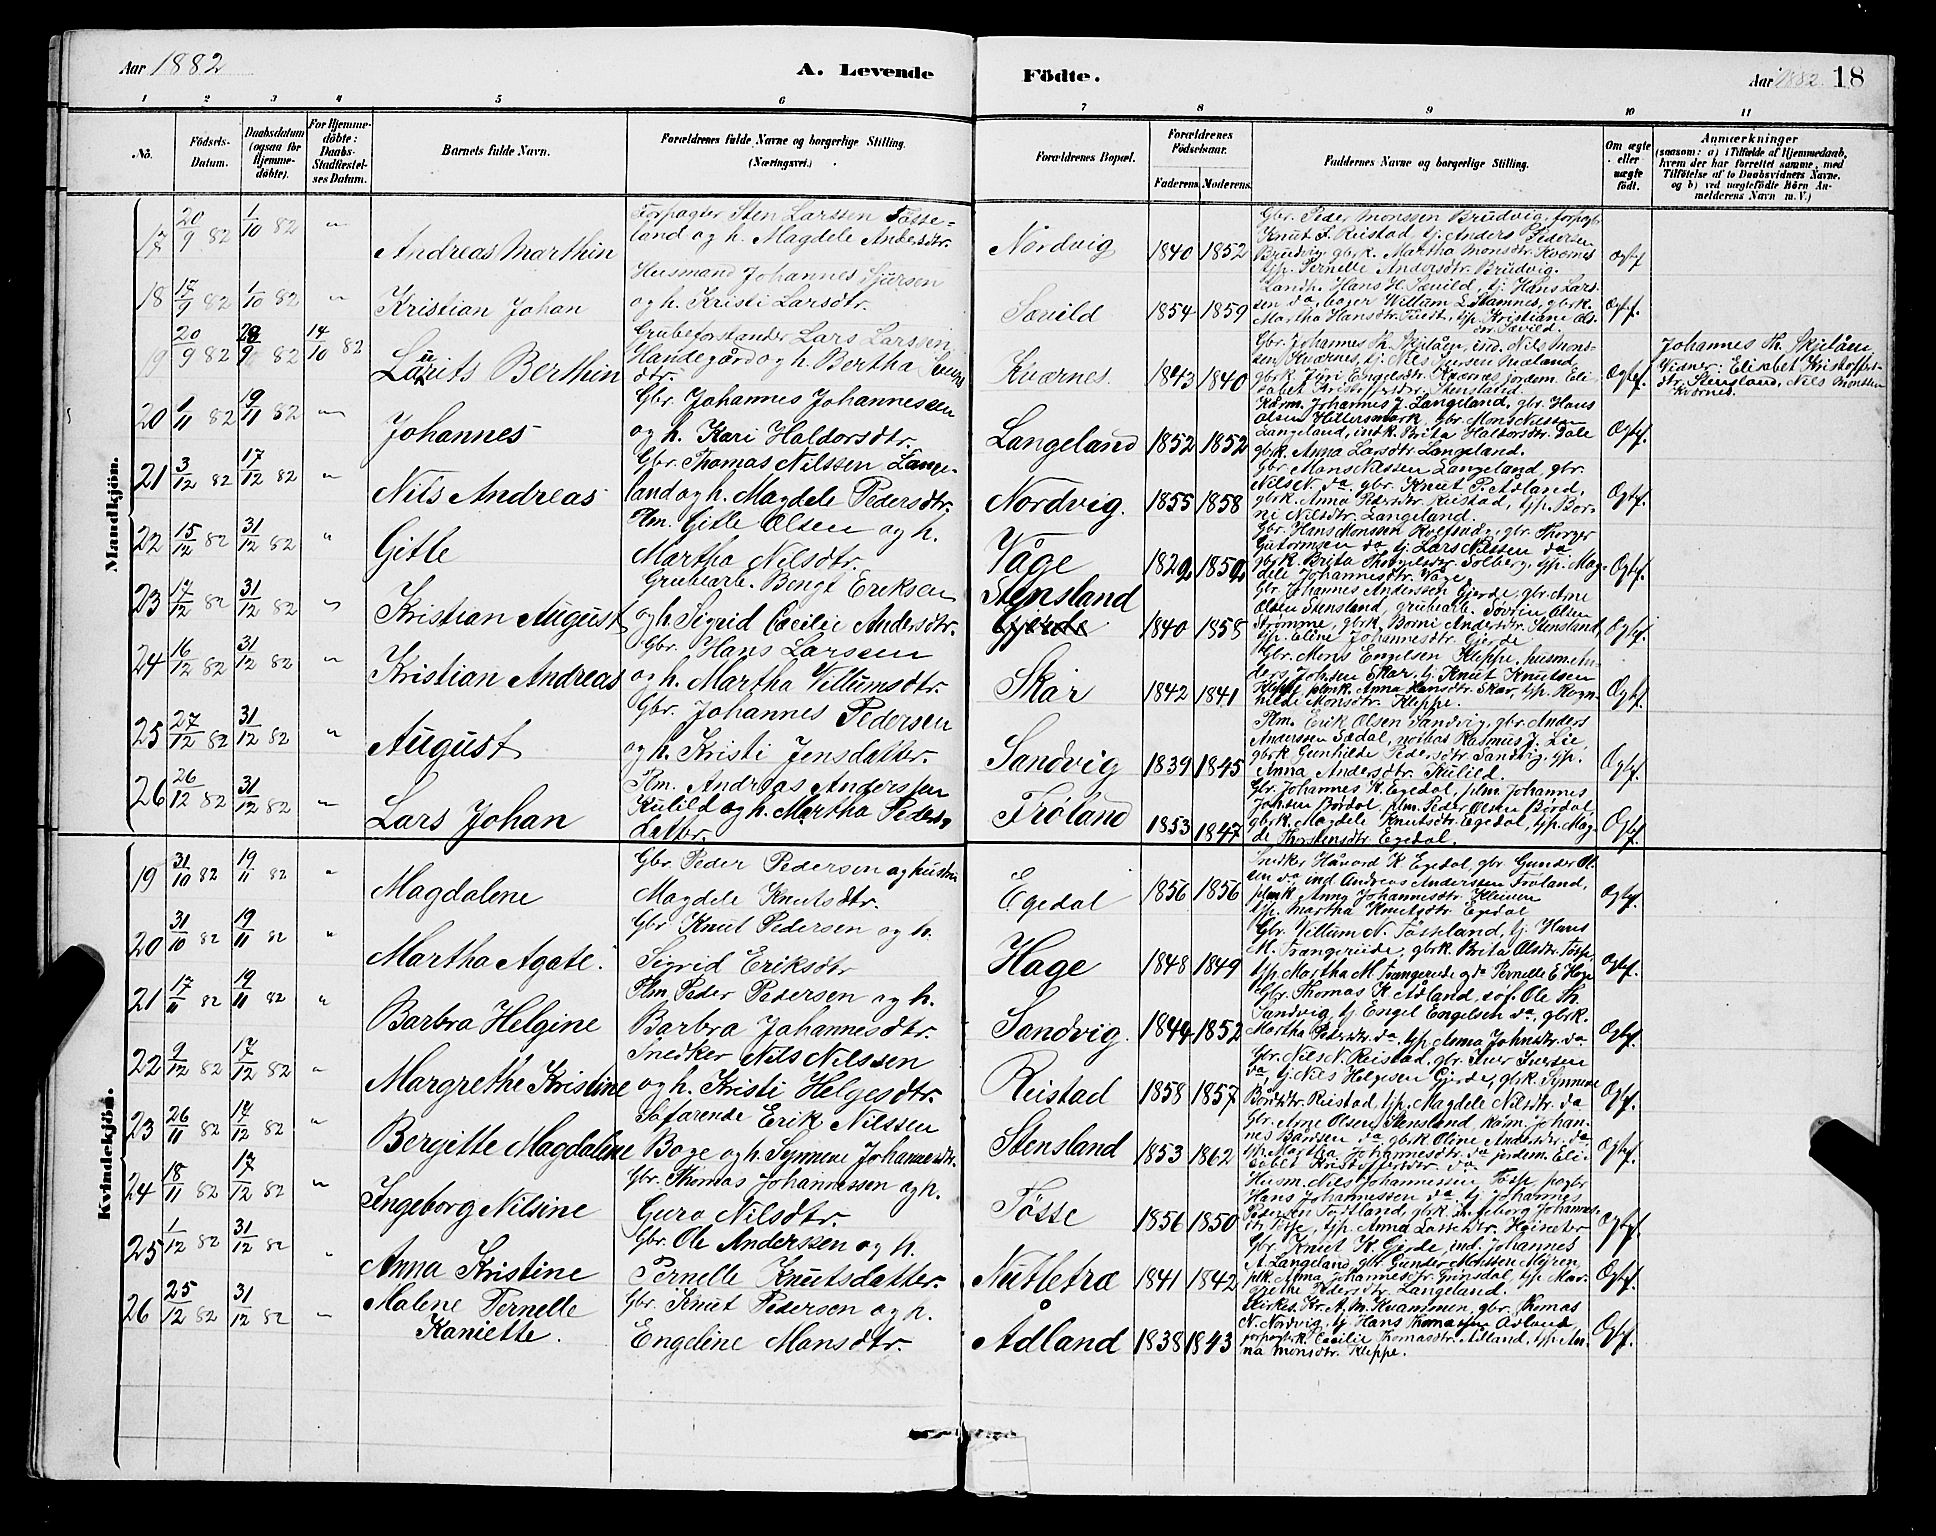 Aar 1882 A. Levende Födte. Aar 1882. 18
1 2 3 4 5 6 7 8 9 10 11
No. Födsels-Datum. Daabsdatum (ogsaa for Hjemme-döbte). For Hjemme-döbte: Daabs-Stadfæstel-ses Datum. Barnets fulde Navn. Forældrenes fulde Navne og borgerlige Stilling. (Næringsvei.) Forældrenes Bopæl. Forældrenes Födselsaar. Faderens Moderens Faddernes Navne og borgerlige Stilling. Om ægte eller uægte födt. Anmærkninger (saasom: a) i Tilfælde af Hjemmedaab, hvem der har forrettet samme, med Tilföielse af to Daabsvidners Navne, og b) ved uægtefödte Börn An-melderens Navn m. V.)
Mandkjön.
17 20/9 82 1/10 82 " Andreas Marthin Forpagter Sten Larssen Tøsse-
land og h. Magdele Andersdtr. Nordvig 1840 1852 Gbr. Peder Monssen Brudvig, forpagt.
Knut J. Reistad, tj. Anders Pedersen
Brudvig, gbrk. Martha Monsdtr. Kvernes
tjp. Pernelle Andersdtr. Brudvig. Ægtef.
18 17/9 82 1/10 82 " Kristian Johan Husmand Johannes Sjursen
og h. Kristi Larsdtr. Sævild 1854 1859 Landh. Hans H. Sævild, tj. Hans Lars-
sen da, bager Willam L. Stamnes, gbrk.
Martha Hansdtr. Tuedt, tjp. Kristiane Ols-
dtr. Sævild. Ægtf.
19 20/9 82 28/9 82 14/10 82 Laurits Berthin Grubeforstander Lars Larssen
Handegård og h. Bertha
dtr. Kvarnes. 1843 1840 Gbr. Johannes Th. Skjelåen, ind. Nils Mons-
sen Kvernes, tj. Nils Iversen Mæland,
gbrk. Jüri Engelsdtr. Kvernes, jordem. Eli-
sabet Kristoffersdtr. Stensland. Ægtef. Johannes Th. Skjelåen
Vidner: Elisabet Kristoffers-
dtr. Stensland, Nils Monssen
Kvernes.
20 1/11 82 19/11 82 " Johannes Gbr. Johannes Johannessen
og h. Kari Haldorsdtr. Langeland 1852 1852 Kårm. Johannes J. Langeland, gbr. Hans
Olsen Hillersmark, gbr. Mons Nilssen
Langeland, indk. Brita Haldorsdtr. Dale
gbrk. Anna Larsdtr. Langeland. Ægtf.
21 3/12 82 17/12 82 " Nils Andreas Gbr. Thomas Nilssen Lange-
land og h. Magdele Pedersdtr. Nordvig. 1855 1858 Gbr. Mons Nilssen Langeland, gbr.
Nils N. da, gbr. Knut P. Ådland,
gbrk. Anna Pedersdtr. Reistad, tjp. Bor-
ni Nilsdtr. Langeland. Ægtf.
22 15/12 82 31/12 82 " Gitle Plm. Gitle Olsen og h.
Martha Nilsdtr. Våge 1829 1859 Gbr. Hans Monssen Rolfsvåg, gbr. Thorger
Gutormsen da, tj. Lars Nilssen da
gbrk. Brita Solberg, tjp. Mag-
deli Johannesdtr. Våge. Ægtf.
23 17/12 82 31/12 82 " Kristian August Grubearb. Bengt Eriksen
og h. Sigrid Cæcilie Andersdtr. Stensland
Gjerde 1840 1858 Gbr. Johannes Anderssen Gjerde, gbr. Arne
Olsen Stensland, grubearb. Søvrin Olsen
Strømme, gbrk. Borni Andersdtr. Stensland,
tjp. Eline Johannesdtr. Gjerde. Ægtf.
24 16/12 82 31/12 82 " Kristian Andreas Gbr. Hans Larssen
og h. Martha Villumsdtr. Skår 1842 1841 Gbr. Mons Engelsen Kleppe, husm. An-
ders Johnsen Skår, tj. Knut Knutsen
Kleppe, plmk. Anna Hansdtr. Skår, tjp. Ragn-
hilde Monsdtr. Kleppe. Ægtf.
25 27/12 82 31/12 82 " August Gbr. Johannes Pedersen
og h. Kristi Jensdatter. Sandvig 1839 1845 Plm. Erik Olsen Sandvig, gbr. Anders
Anderssen Sædal, notbas Rasmus J. Lie,
gbrk. Gunhilde Pedersdtr. Sandvig, tjp.
Anna Andersdtr. Kulild. Ægtf.
26 26/12 82 31/12 82 " Lars Johan Plm. Andreas Anderssen
Kulild og h. Martha Peders-
datter. Trøland 1853 1847 Gbr. Johannes K. Egedal, plm. Johannes
Johnsen Børdal, plm. Peder Olsen Børdal,
gbrk. Magdele Knutsdtr. Egedal, tjp. Mag-
de Thorstensdtr. Egedal. Ægtf.
Kvindekjön.
19 31/10 82 19/11 82 " Magdalene Gbr. Peder Pedersen og hustru
Magdele Knutsdtr. Egedal 1856 1856 Snedker Håvard K. Egedal, gbr. Gunder Ol-
sen da, ind. Andreas Anderssen Trøland,
plmk. Anna Johannesdtr. Kleiven
tjp. Martha Knutsdtr. Egedal Ægtf.
20 31/10 82 19/11 82 " Martha Agate. Gbr. Knut Pedersen og h.
Sigrid Eriksdtr Hage 1848 1849 Gbr. Villum N. Tøsseland, tj. Hans
M. Trangereide, gbrk. Brita Olsdtr. Tøsse,
tjp. Martha M. Trangereide og da Pernelle E. Hage Ægtf.
21 17/11 82 19/11 82 " Barbra Helgine Plm. Peder Pedersen og h.
Barbra Johannesdtr. Sandvig. 1844 1852 Gbr. Thomas K. Ådland, søf. Ole Th.
Sandvig, tj. Engel Engelsen da, gbrk.
Martha Pedersdtr. da, tjp. Anna Johnsdtr. da Ægtf.
22 9/12 82 17/12 82 " Margrethe Kristine Snedker Nils Nilssen
og h. Kristi Helgesdtr. Reistad 1858 1857 Gbr. Nils N. Reistad, gbr. Iver Iversen
da, tj. Nils Helgesen Gjerde, gbrk. Synneve
Bårdsdtr. Reistad, tjp. Magdele Nilsdtr. da Ægtf.
23 26/11 82 17/12 82 " Bergitte Magdalene Søfarende Erik Nilssen
Boge og h. Synneve Johannesdtr. Stensland 1853 1862 Gbr. Arne Olsen Stensland, kårm. Johan-
nes Bårdsen da, gbrk. Oline Andersdtr. da,
tjp. Martha Johannesdtr. da, jordem. Eli-
sabet Kristoffersdtr. da Ægtf.
24 18/11 82 17/12 82 " Ingeborg Nilsine Gbr. Thomas Johannessen og h.
Guro Nilsdtr. Tøsse 1856 1850 Husm. Nils Johannessen Tøsse, pogbr
Hans Johannessen da, tj. Johannes
Pedersen Tøsseland, gbrk. Ingeborg Johannes-
dtr. Tøsse, tjp. Anna Lassedtr. Ægtf.
25 1/12 82 31/12 82 " Anna Kristine Gbr. Ole Anderssen og h.
Pernelle Knutsdatter. Nutletræ 1841 1842 Gbr. Knut K. Gjerde, ind. Johannes
A. Langeland, gbr. Gunder Monssen Myren,
plk. Anna Johannesdtr. Grinsdal, tjp. Mar-
grethe Pedersdtr. Langeland. Ægtf.
26 25/12 82 31/12 82 " Malene Pernelle
Kaniette. Gbr. Knut Pedersen og h.
Engeline Monsdtr. Ådland 1838 1843 Kirkes. Kr. A. M. Kvammen, gbr. Thomas
N. Nordvig, tj. Hans Thomassen Ådland,
forpagtk. Cæcilie Thomasdtr. Ådland, tjp. An-
na Monsdtr. Kleppe. Ægtf.